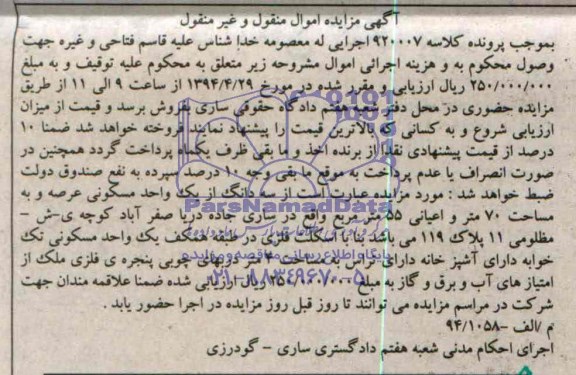 آگهی مزایده اموال منقول و غیر منقول
بموجب پرونده کلاسه ۹۲۰۰۰۷ اجرایی له معصومه خدا شناس علیه قاسم فتاحی و غیره جهت
وصول محکوم به و هزینه اجرائی اموال مشروحه زیر متعلق به محکوم علیه توقیف و به مبلغ
۲۵۰/۰۰۰/۰۰۰ ریال ارزیابی و مقرر شده در مورخ ۱۳۹۴/۴/۲۹ از ساعت ۹ الی ۱۱ از طریق
مزایده حضوری در محل دفتر شعبه هفتم دادگاه حقوقی ساری بفروش برسد و قیمت از میزان
ارزیابی شروع و به کسانی که بالاترین قیمت را پیشنهاد نمایند فروخته خواهد شد ضمنا ۱۰
درصد از قیمت پیشنهادی نقدا از برنده اخذ و ما بقی ظرف یکماه پرداخت گردد همچنین در
صورت انصراف یا عدم پرداخت به موقع ما بقی وجه ۱۰ درصد سپرده به نفع صندوق دولت
ضبط خواهد شد : مورد مزایده عبارت است از سه دانگ از یک واحد مسکونی عرصه و به
ParsNamadData
مساحت ۷۰ متر و اعیانی ۵۵ متر مربع واقع در ساری جاده دریا صفر آباد کوچه ی-ش -
مظلومی ۱۱ پلاک ۱۱۹ می باشد بنا با اسکلت فلزی در طبقه همکف یک واحد مسکونی تک
پایگاه اطلاع رسانی مناقصه و مزایده
خوابه دارای آشپز خانه دارای تراس به مساحت ۳ متر دربهای چوبی پنجره ی فلزی ملک از
۰۲۱-۸۸۳۴۹۶۷۰-۵
امتیاز های آب و برق و گاز به مبلغ ۲۵۰/۰۰۰/۰۰۰ ریال ارزیابی شده ضمنا علاقمه مندان جهت
شرکت در مراسم مزایده می توانند تا روز قبل روز مزایده در اجرا حضور یابد .
م /الف -۹۴/۱۰۵۸
اجرای احکام مدنی شعبه هفتم دادگستری ساری - گودرزی